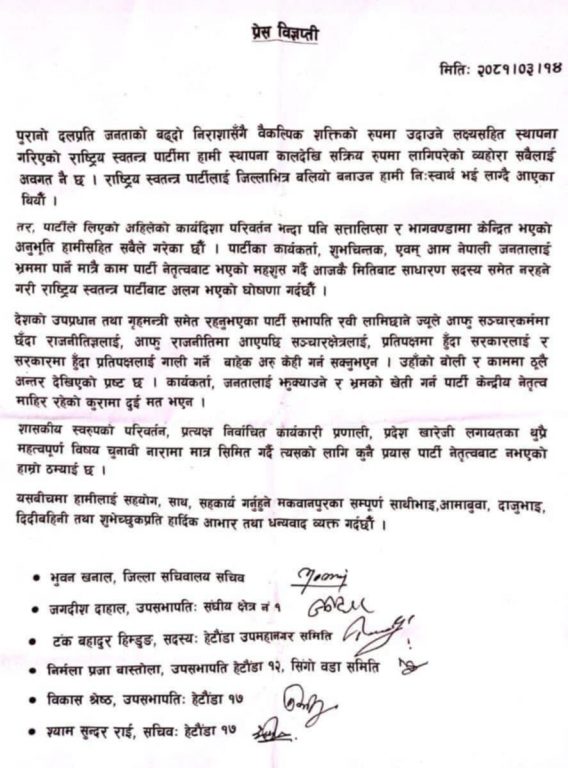 प्रेस विज्ञप्ती
मितिः २०८१।०३।१४
पुरानो दलप्रति जनताको बढ्दो निराशासँगै वैकल्पिक शक्तिको रुपमा उदाउने लक्ष्यसहित स्थापना
गरिएको राष्ट्रिय स्वतन्त्र पार्टीमा हामी स्थापना कालदेखि सक्रिय रुपमा लागिपरेको व्यहोरा सबैलाई
अवगत नै छ । राष्ट्रिय स्वतन्त्र पार्टीलाई जिल्लाभित्र बलियो बनाउन हामी निःस्वार्थ भई लाग्दै आएका
थियौँ ।
तर, पार्टीले लिएको अहिलेको कार्यदिशा परिवर्तन भन्दा पनि सत्तालिप्सा र भागवण्डामा केन्द्रित भएको
अनुभूति हामीसहित सबैले गरेका छौँ । पार्टीका कार्यकर्ता, शुभचिन्तक, एवम् आम नेपाली जनतालाई
भ्रममा पार्ने मात्रै काम पार्टी नेतृत्वबाट भएको महशुस गर्दै आजकै मितिबाट साधारण सदस्य समेत नरहने
गरी राष्ट्रिय स्वतन्त्र पार्टीबाट अलग भएको घोषणा गर्दछौँ ।
देशको उपप्रधान तथा गृहमन्त्री समेत रहनुभएका पार्टी सभापति रवी लामिछाने ज्यूले आफु सञ्चारकर्ममा
छँदा राजनीतिज्ञलाई, आफु राजनीतिमा आएपछि सञ्चारक्षेत्रलाई, प्रतिपक्षमा हुँदा सरकारलाई र
सरकारमा हुँदा प्रतिपक्षलाई गाली गर्ने बाहेक अरु केही गर्न सक्नुभएन । उहाँको बोली र काममा ठूलै
अन्तर देखिएको प्रष्ट छ । कार्यकर्ता, जनतालाई झुक्याउने र भ्रमको खेती गर्न पार्टी केन्द्रीय नेतृत्व
माहिर रहेको कुरामा दुई मत भएन ।
शासकीय स्वरुपको परिवर्तन, प्रत्यक्ष निर्वाचित कार्यकारी प्रणाली, प्रदेश खारेजी लगायतका थुप्रै
महत्वपूर्ण विषय चुनावी नारामा मात्र सिमित गर्दै त्यसको लागि कुनै प्रयास पार्टी नेतृत्वबाट नभएको
हाम्रो ठम्याई छ ।
यसबीचमा हामीलाई सहयोग, साथ, सहकार्य गर्नुहुने मकवानपुरका सम्पूर्ण साथीभाइ,आमाबुवा, दाजुभाइ,
दिदीबहिनी तथा शुभेच्छुकप्रति हार्दिक आभार तथा धन्यवाद व्यक्त गर्दछौँ ।
• भुवन खनाल, जिल्ला सचिवालय सचिव
• जगदीश दाहाल, उपसभापतिः संघीय क्षेत्र नं १
• टंक बहादुर हिम्डुङ, सदस्यः हेटौंडा उपमहानगर समिति
• निर्मला प्रजा बास्तोला, उपसभापति हेटौंडा १२, सिंगो वडा समिति
• विकास श्रेष्ठ, उपसभापतिः हेटौंडा १७
• श्याम सुन्दर राई, सचिवः हेटौंडा १७